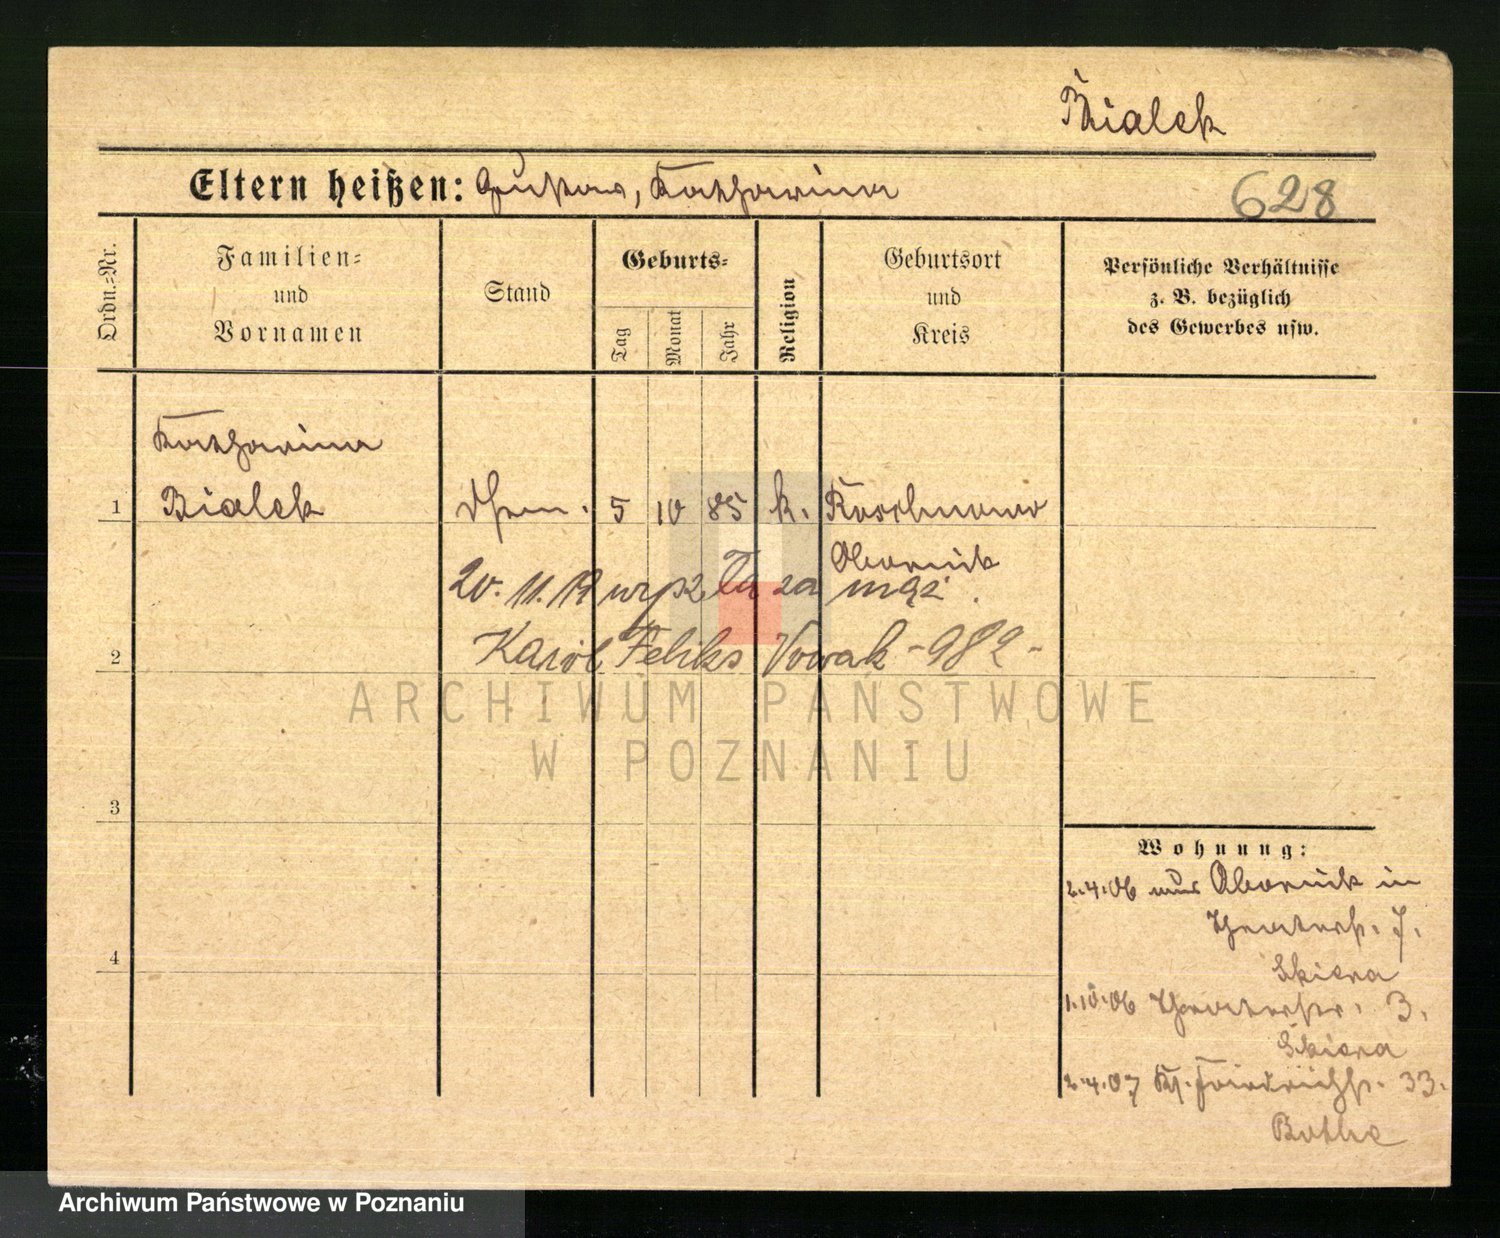 Bialek
Eltern heißen: Gustav, Katharina
628
Ordn.-Nr.
Familien-
und
Vornamen
Stand
Geburts-
Tag
Monat
Jahr
Religion
Geburtsort
und
Kreis
Persönliche Verhältnisse
z. B. bezüglich
des Gewerbes usw.
Katharina
1 Bialek 5 10 85 k.
Obornik
20. 11. 19 wyszła za mąż
2 Karol Feliks Nowak - 982 -
ARCHIWUM PAŃSTWOWE
W POZNANIU
3
Wohnung:
2.4.06 aus Obornik in
Theaterstr. 7.
4
Skiera
1.10.06 Theaterstr. 3.
Skiera
2.4.07 Kl. Friedrichstr. 33.
Bothe
Archiwum Państwowe w Poznaniu